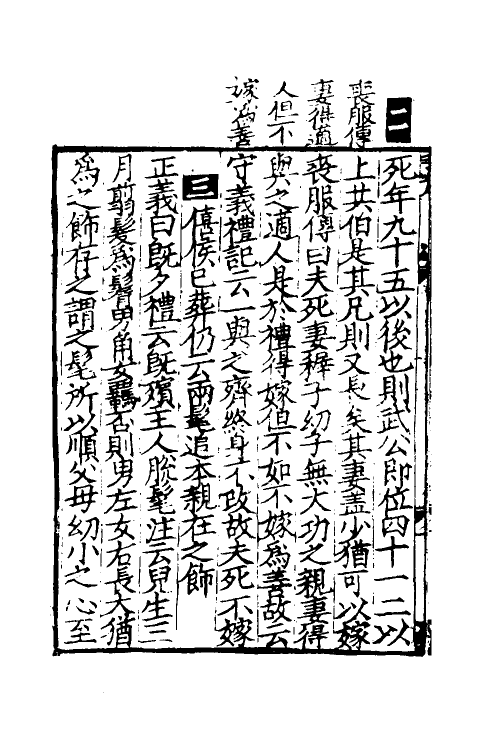 二
喪服傳
妻得適
人但不
嫁爲善
死年九十五以後也則武公即位四十一二以
上共伯是其兄則又長矣其妻蓋少猶可以嫁
喪服傳曰夫死妻稺子幼子無大功之親妻得
與之適人是於禮得嫁但不如不嫁爲善故云
守義禮記云一與之齊終身不改故夫死不嫁
三 僖侯已葬仍云兩髦追本親在之飾
正義曰旣夕禮云旣殯主人脫髦注云兒生三
月翦髮爲鬌男角女羈否則男左女右長大猶
爲之飾存之謂之髦所以順父母幼小之心至